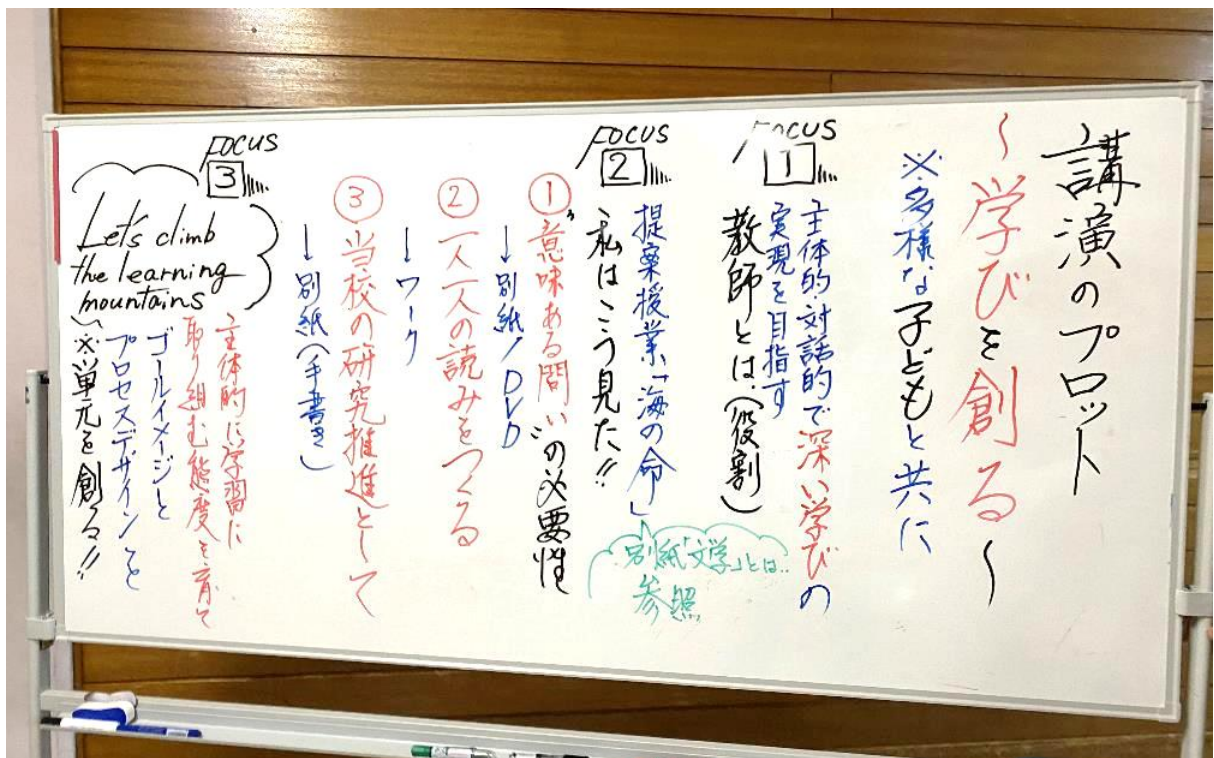 講演のプロット
～学びを創る～
※多様な子どもと共に
FOCUS
1
主体的・対話的で深い学びの
実現を目指す
教師とは、(役割)
FOCUS
2
提案授業「海の命」
私はこう見た!!
別紙「文学」とは..
参照
①“意味ある問い”の必要性
→別紙/DVD
②一人一人の読みをつくる
→ワーク
③当校の研究推進として
→別紙(手書き)
FOCUS
3
Let's climb
the learning
mountains
主体的に学習に
取り組む態度を育て
ゴールイメージと
プロセスデザインを
～※単元を創る!!